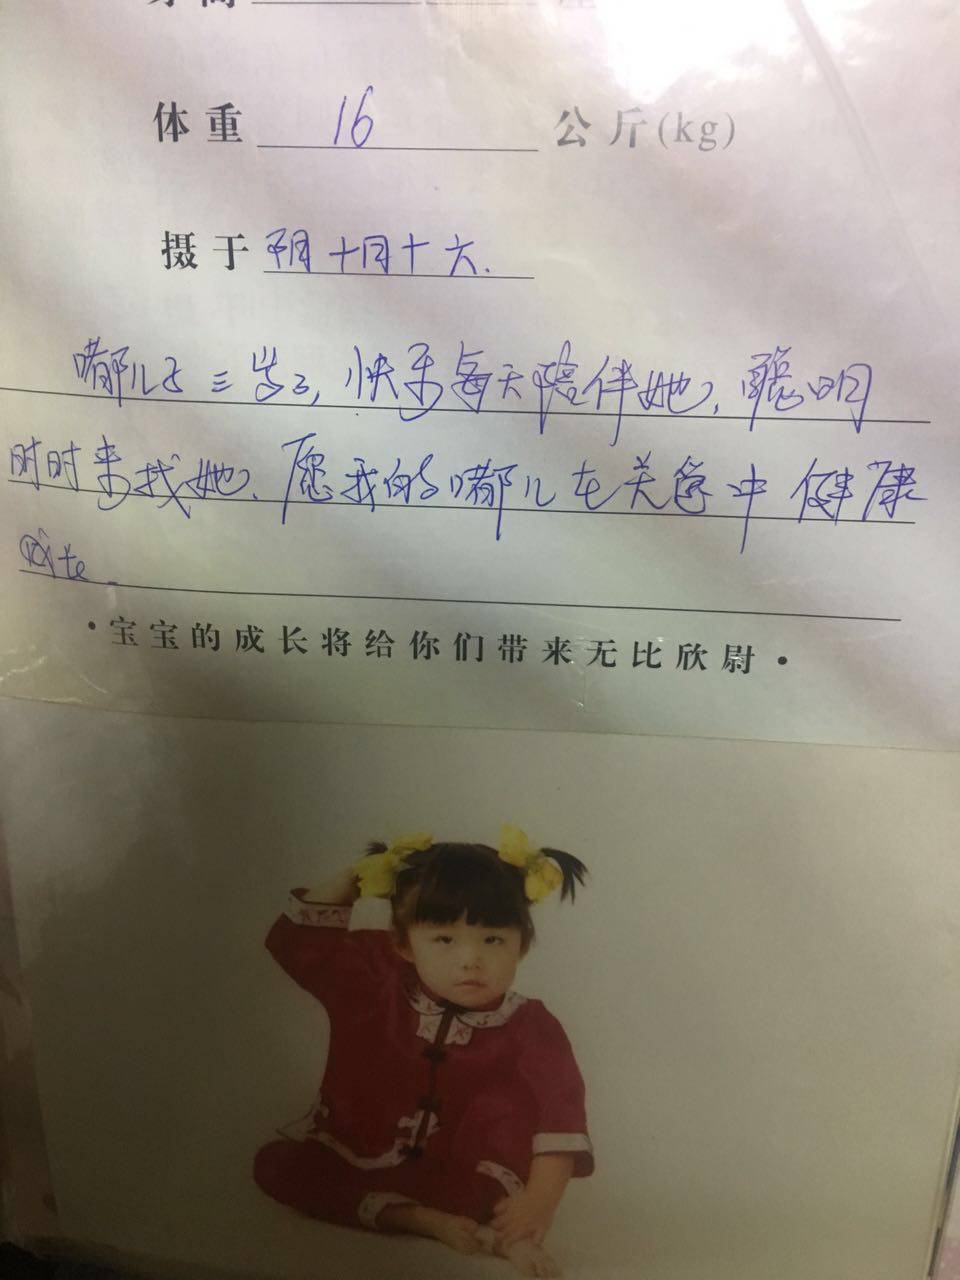 体重 16 公斤(kg)
摄于 阴十月十六.
嘟儿三岁了,快乐每天陪伴她,聪明
时时来找她、愿我的嘟儿在关爱中健康
成长
•宝宝的成长将给你们带来无比欣尉•